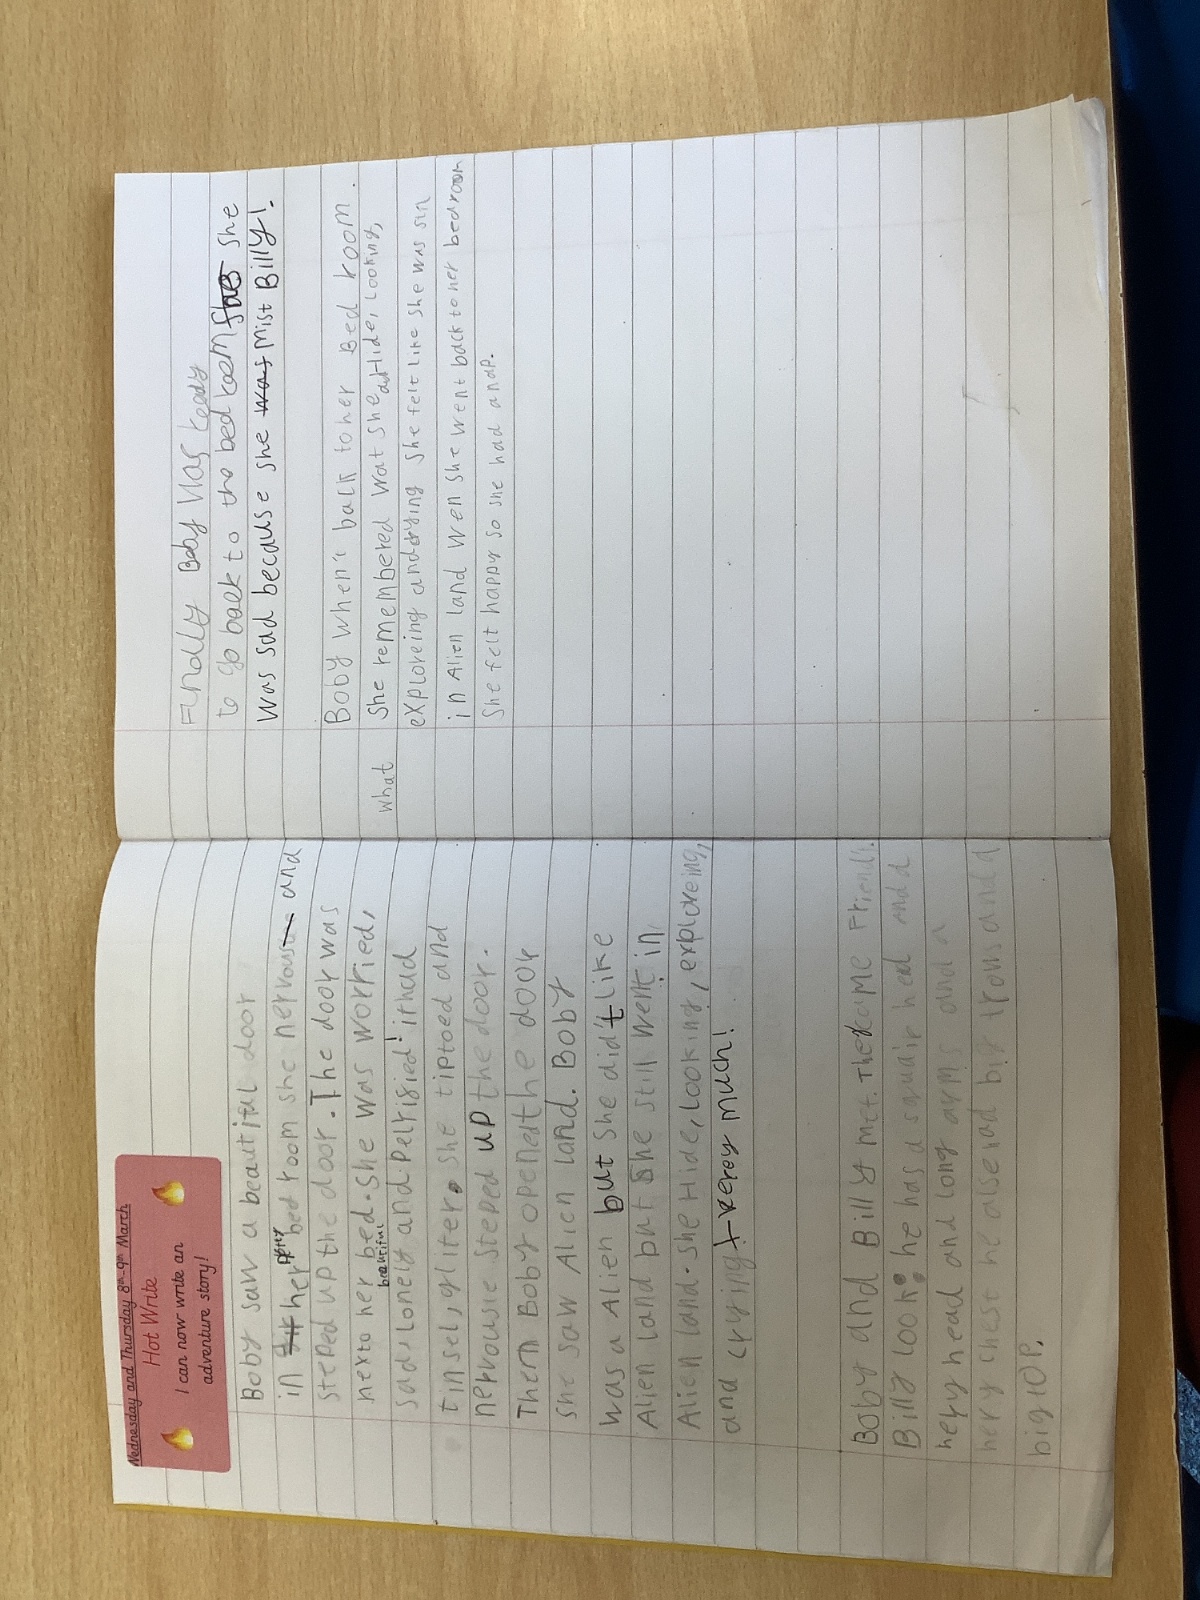 Wednesday and Thursday 8th-9th March
Hot Write
I can now write an
adventure story!
Boby saw a beautiful door
in her bed room she nervous and
steped up the door. The door was
nexto her bed. she was worried,
beautiful
sad, lonely and petrified! it had
tinsel, gliter. she tiptoed and
nervousie steped up the door.
Them Boby openedthe door
she saw Alien land. Boby
was a Alien but she did't like
Alien land but she still went in
Alien land. she Hide, Looking, exploreing,
and crying verey much!
Boby and Billy met. They came Friends.
Billy look: he has a squair head and a
hery head and long arms and a
hery chest he alse had big trous and
big top.
Finally Boby was ready
to go back to the bed room she
was sad because she mist Billy!
Boby when't back to her Bed room.
what
She remembered wat she Hide, Looking,
exploreing and crying she felt like she was sin
in Alien land wen she went back to her bedroom
She felt happy so she had anap.